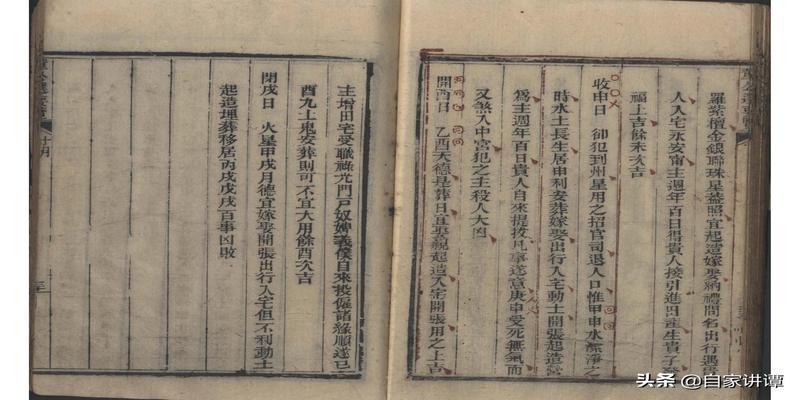 羅紫檀金銀聯珠星蓋照宜起造嫁娶納禮問名出行遇
人入宅永安甯主週年百日得貴人接引進田產生貴子
福上吉餘未次吉
收申日 卻犯到州星用之招官司退人口惟甲申水潔淨之
時水土長生居申利安葬嫁娶出行入宅動土開張起造營
為主週年百日貴人自來提拔凡事遂意庚申受死無氣而
又煞入中宮犯之主殺人大凶
開酉日 乙酉天德是葬日宜娶親起造入宅開張用之上吉
主增田宅受職祿光門戶奴婢義僕自來投僱諸緣順遂己
酉九土鬼安葬則可不宜大用餘酉次吉
閉戌日 火星甲戌月德宜嫁娶開張出行入宅但不利動土
起造埋葬移居丙戌戊戌百事凶敗
十月
头条 @自家讲谭